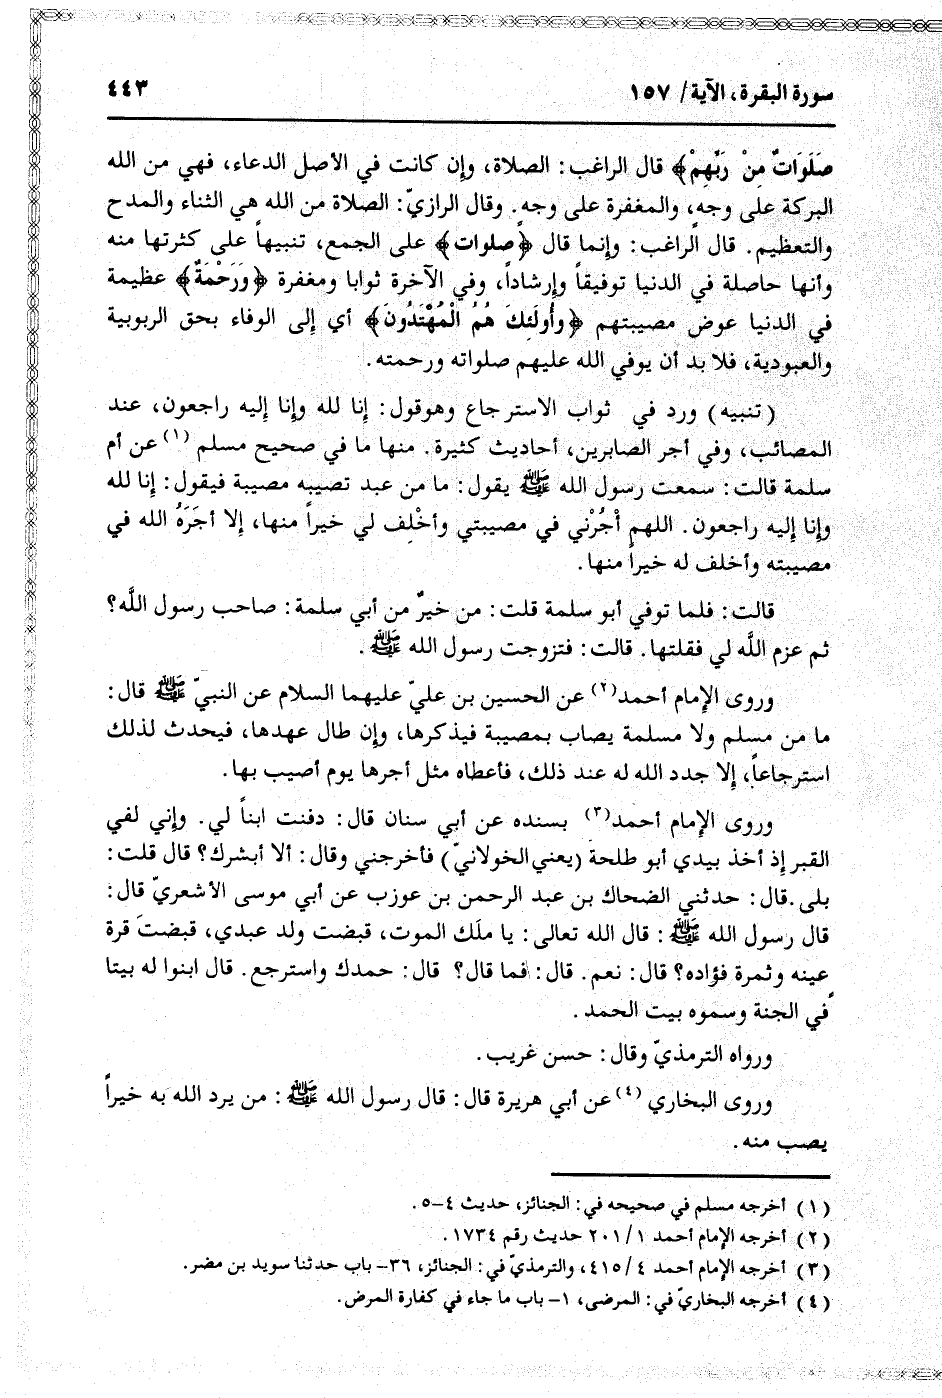 سورة البقرة، الآية/ ١٥٧
٤٤٣
صَلَوَاتٌ مِنْ رَبِّهِمْ﴾ قال الراغب: الصلاة، وإن كانت في الأصل الدعاء، فهي من الله
البركة على وجه، والمغفرة على وجه. وقال الرازيّ: الصلاة من الله هي الثناء والمدح
والتعظيم. قال الراغب: وإنما قال ﴿صلوات﴾ على الجمع، تنبيهاً على كثرتها منه
وأنها حاصلة في الدنيا توفيقاً وإرشاداً، وفي الآخرة ثوابا ومغفرة ﴿وَرَحْمَةٌ﴾ عظيمة
في الدنيا عوض مصيبتهم ﴿وأُولَئِكَ هُمُ الْمُهْتَدُونَ﴾ أي إلى الوفاء بحق الربوبية
والعبودية، فلا بد أن يوفي الله عليهم صلواته ورحمته.
(تنبيه) ورد في ثواب الاسترجاع وهوقول: إنا لله وإنا إليه راجعون، عند
المصائب، وفي أجر الصابرين، أحاديث كثيرة. منها ما في صحيح مسلم (١) عن أم
سلمة قالت: سمعت رسول الله ﷺ يقول: ما من عبد تصيبه مصيبة فيقول: إنا لله
وإنا إليه راجعون. اللهم أْجُرْني في مصيبتي وأخْلف لي خيراً منها، إلا أجَرَهُ الله في
مصيبته وأخلف له خيراً منها.
قالت: فلما توفي أبو سلمة قلت: من خيرٌ من أبي سلمة: صاحب رسول اللَّه؟
ثم عزم اللَّه لي فقلتها. قالت: فتزوجت رسول الله ﷺ.
وروى الإمام أحمد(٢) عن الحسين بن عليّ عليهما السلام عن النبيّ ﷺ قال:
ما من مسلم ولا مسلمة يصاب بمصيبة فيذكرها، وإن طال عهدها، فيحدث لذلك
استرجاعاً، إلا جدد الله له عند ذلك، فأعطاه مثل أجرها يوم أصيب بها.
وروى الإمام أحمد(٣) بسنده عن أبي سنان قال: دفنت ابناً لي. وإني لفي
القبر إذ أخذ بيدي أبو طلحة (يعني الخولانيّ) فأخرجني وقال: ألا أبشرك؟ قال قلت:
بلى. قال: حدثني الضحاك بن عبد الرحمن بن عوزب عن أبي موسى الأشعريّ قال:
قال رسول الله ﷺ: قال الله تعالى: يا ملَك الموت، قبضت ولد عبدي، قبضت قرة
عينه وثمرة فؤاده؟ قال: نعم. قال: فما قال؟ قال: حمدك واسترجع. قال ابنوا له بيتا
في الجنة وسموه بيت الحمد.
ورواه الترمذيّ وقال: حسن غريب.
وروى البخاري (٤) عن أبي هريرة قال: قال رسول الله ﷺ: من يرد الله به خيراً
يصب منه.
(١) أخرجه مسلم في صحيحه في: الجنائز، حديث ٤-٥.
(٢) أخرجه الإمام أحمد ٢٠١/١ حديث رقم ١٧٣٤.
(٣) أخرجه الإمام أحمد ٤١٥/٤، والترمذيّ في: الجنائز، ٣٦- باب حدثنا سويد بن مضر.
(٤) أخرجه البخاريّ في: المرضى، ١- باب ما جاء في كفارة المرض.